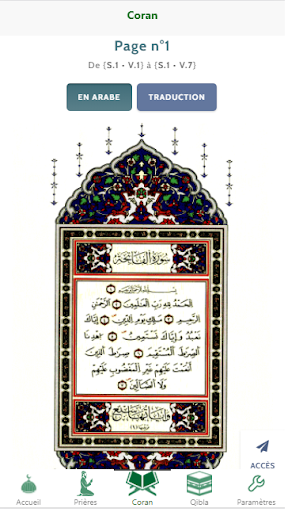 Coran
Page n°1
De {S.1 • V.1} à {S.1 • V.7}
EN ARABE
TRADUCTION
سورة الفاتحة
بسم الله الرحمن الرحيم
الحمد لله رب العلمين الرحمن
الرحيم ملك يوم الدين إياك
نعبد وإياك نستعين اهدنا
الصرط المستقيم صرط الذين
أنعمت عليهم غير المغضوب عليهم
ولا الضالين
ACCÈS
Accueil
Prières
Coran
Qibla
Paramètres